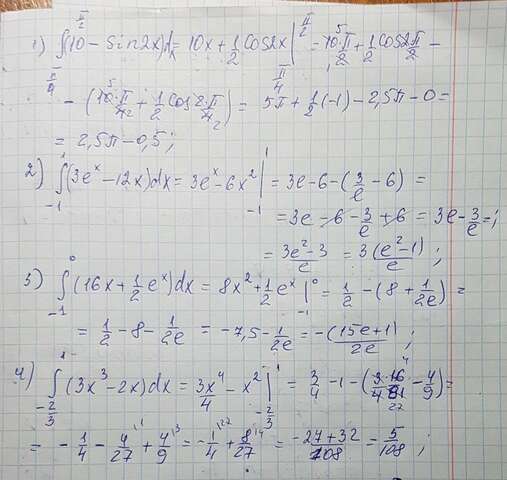 1) ∫_{π/4}^{π/2} (10 − Sin2x)dx = 10x + 1/2 Cos2x |_{π/4}^{π/2} = 10·π/2 + 1/2 Cos2·π/2 −
− (10·π/4 + 1/2 Cos 2·π/4) = 5π + 1/2(−1) − 2,5π − 0 =
= 2,5π − 0,5;
2) ∫_{−1}^{1} (3e^x − 12x)dx = 3e^x − 6x² |_{−1}^{1} = 3e − 6 − (3/e − 6) =
= 3e − 6 − 3/e + 6 = 3e − 3/e = ;
= (3e² − 3)/e = 3(e² − 1)/e ;
3) ∫_{−1}^{0} (16x + 1/2 e^x)dx = 8x² + 1/2 e^x |_{−1}^{0} = 1/2 − (8 + 1/2e) =
= 1/2 − 8 − 1/2e = −7,5 − 1/2e = −(15e+1)/2e ;
4) ∫_{−2/3}^{1} (3x³ − 2x)dx = 3x⁴/4 − x² |_{−2/3}^{1} = 3/4 − 1 − (3·16/4·81 − 4/9) =
= −1/4 − 4/27 + 4/9 = −1/4 + 8/27 = (−27+32)/108 = 5/108 ;